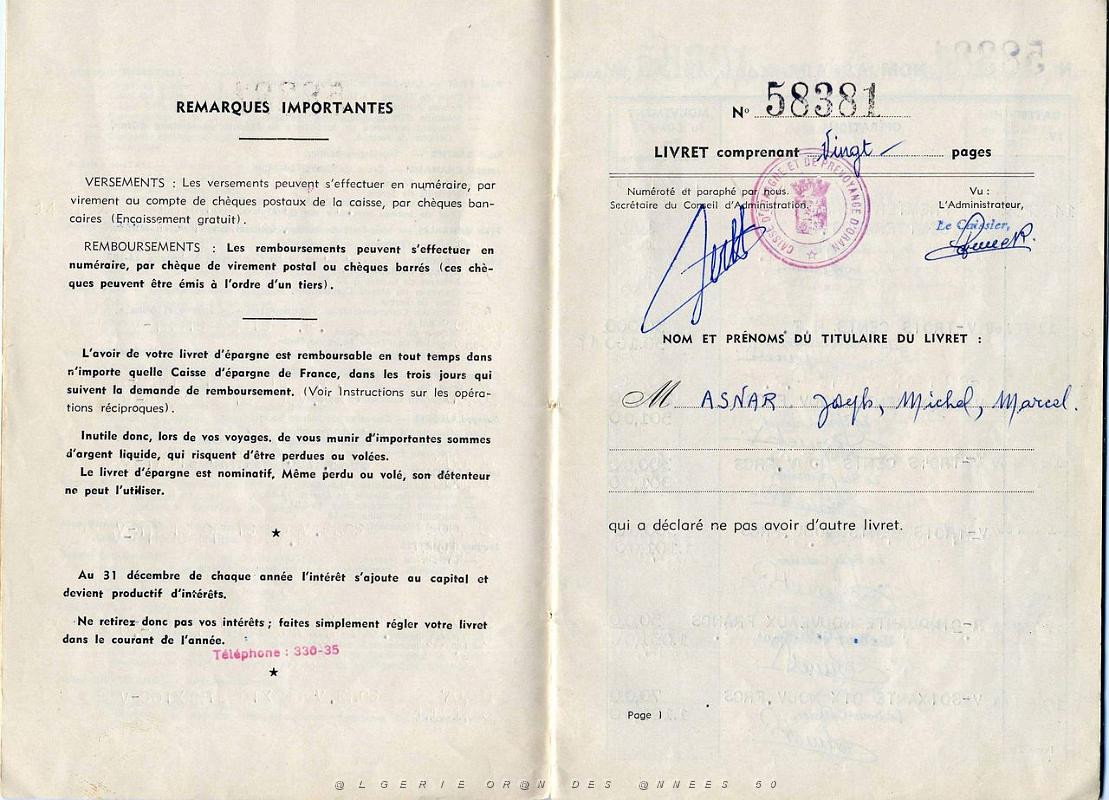 REMARQUES IMPORTANTES
VERSEMENTS : Les versements peuvent s'effectuer en numéraire, par
virement au compte de chèques postaux de la caisse, par chèques ban-
caires (Encaissement gratuit).
REMBOURSEMENTS : Les remboursements peuvent s'effectuer en
numéraire, par chèque de virement postal ou chèques barrés (ces chè-
ques peuvent être émis à l'ordre d'un tiers).
L'avoir de votre livret d'épargne est remboursable en tout temps dans
n'importe quelle Caisse d'épargne de France, dans les trois jours qui
suivent la demande de remboursement. (Voir Instructions sur les opéra-
tions réciproques).
Inutile donc, lors de vos voyages. de vous munir d'importantes sommes
d'argent liquide, qui risquent d'être perdues ou volées.
Le livret d'épargne est nominatif, Même perdu ou volé, son détenteur
ne peut l'utiliser.
★
Au 31 décembre de chaque année l'intérêt s'ajoute au capital et
devient productif d'intérêts.
Ne retirez donc pas vos intérêts ; faites simplement régler votre livret
dans le courant de l'année.
Téléphone : 330-35
★
N° 58381
LIVRET comprenant Vingt pages
Numéroté et paraphé par nous.
Secrétaire du Conseil d'Administration.
CAISSE D'ÉPARGNE ET DE PRÉVOYANCE D'ORAN
Vu :
L'Administrateur,
Le Caissier,
NOM ET PRÉNOMS DU TITULAIRE DU LIVRET :
M ASNAR Joseph, Michel, Marcel.
qui a déclaré ne pas avoir d'autre livret.
Page 1
@LGERIE OR@N DES @NNEES 50